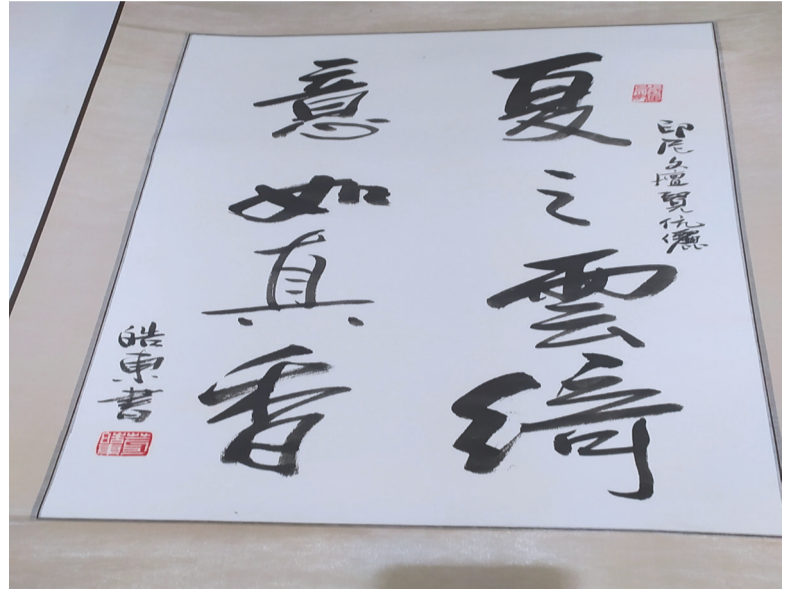 印尼文壇賢伉儷
夏之雲綺
意如真香
皓東書